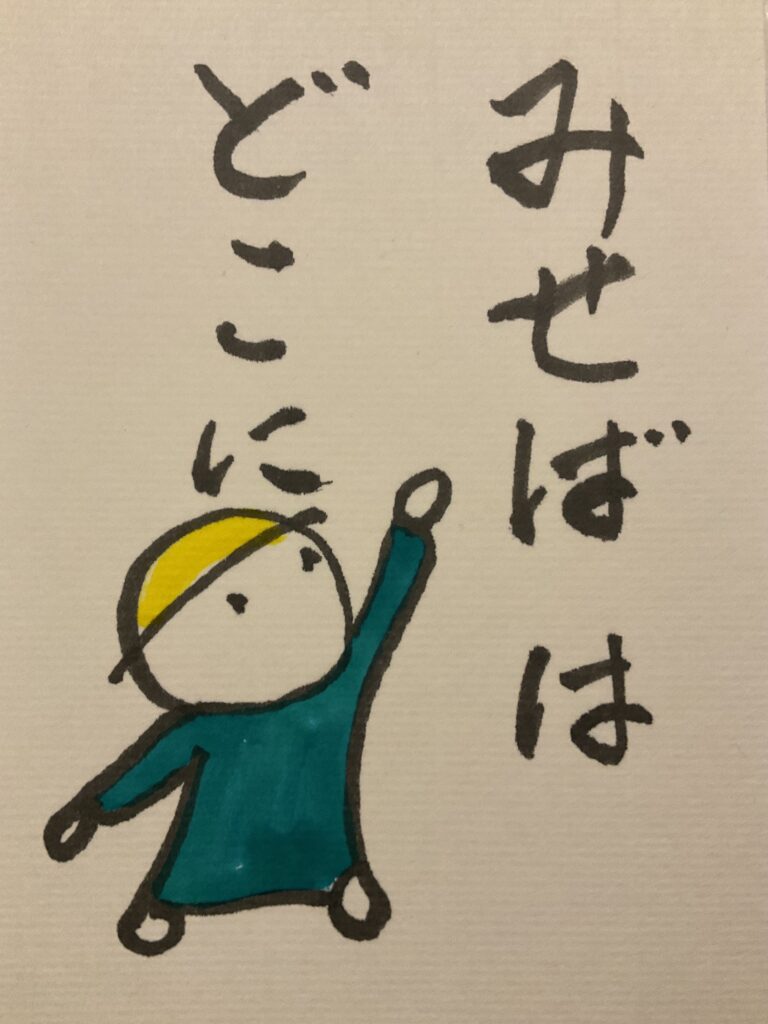 みせばは
どこに